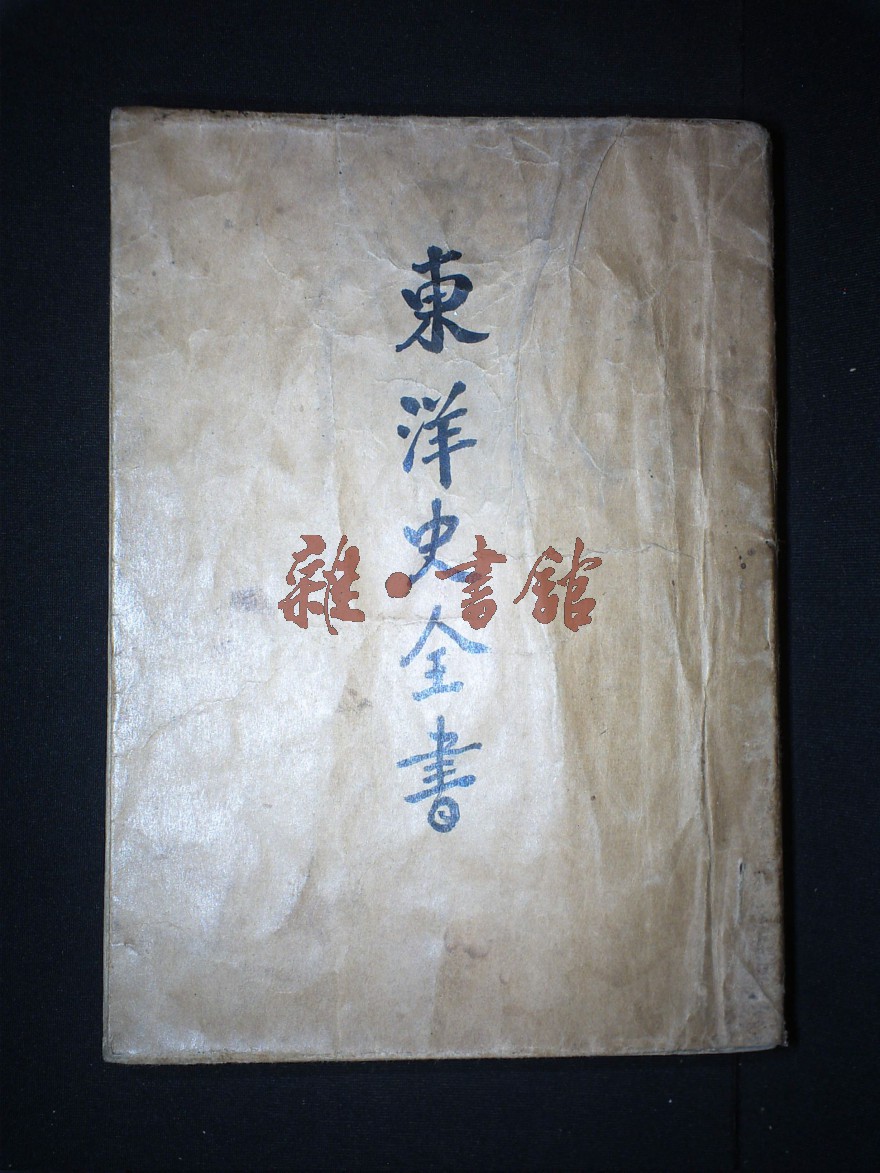 東洋史全書
雜·書館